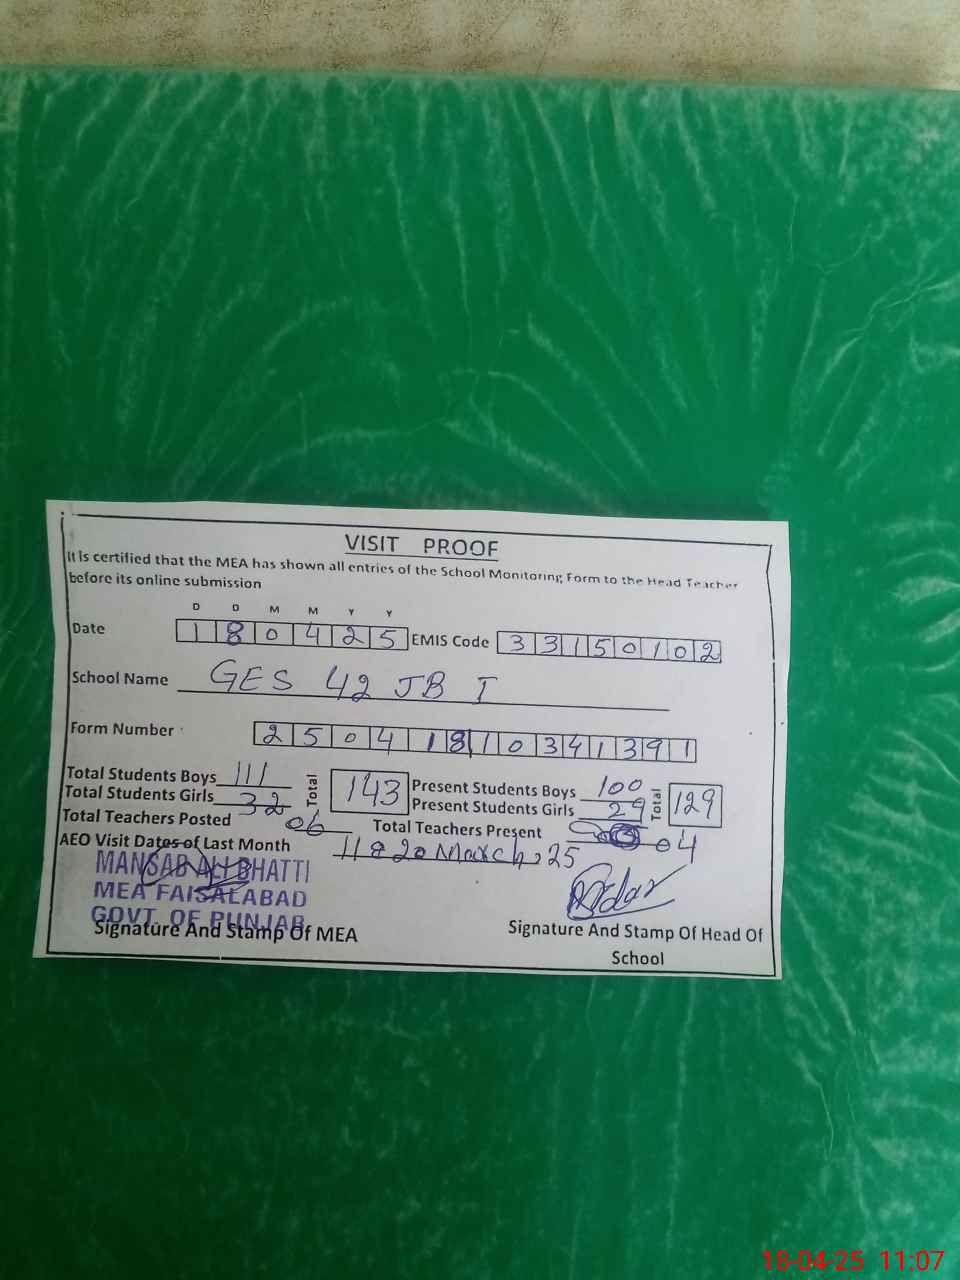 VISIT PROOF
It Is certified that the MEA has shown all entries of the School Monitoring Form to the Head Teacher
before its online submission
D D M M Y Y
Date 1 8 0 4 2 5 EMIS Code 3 3 1 5 0 1 0 2
School Name GES 42 JB I
Form Number 2 5 0 4 1 8 1 0 3 4 1 3 9 1
Total Students Boys 111 Total 143 Present Students Boys 100 Total 129
Total Students Girls 32 Present Students Girls 29
Total Teachers Posted 06 Total Teachers Present 04
AEO Visit Dates of Last Month 11 & 20 March, 25
MANSAB ALI BHATTI
MEA FAISALABAD
GOVT. OF PUNJAB
Signature And Stamp Of MEA Signature And Stamp Of Head Of
School
18-04-25 11:07